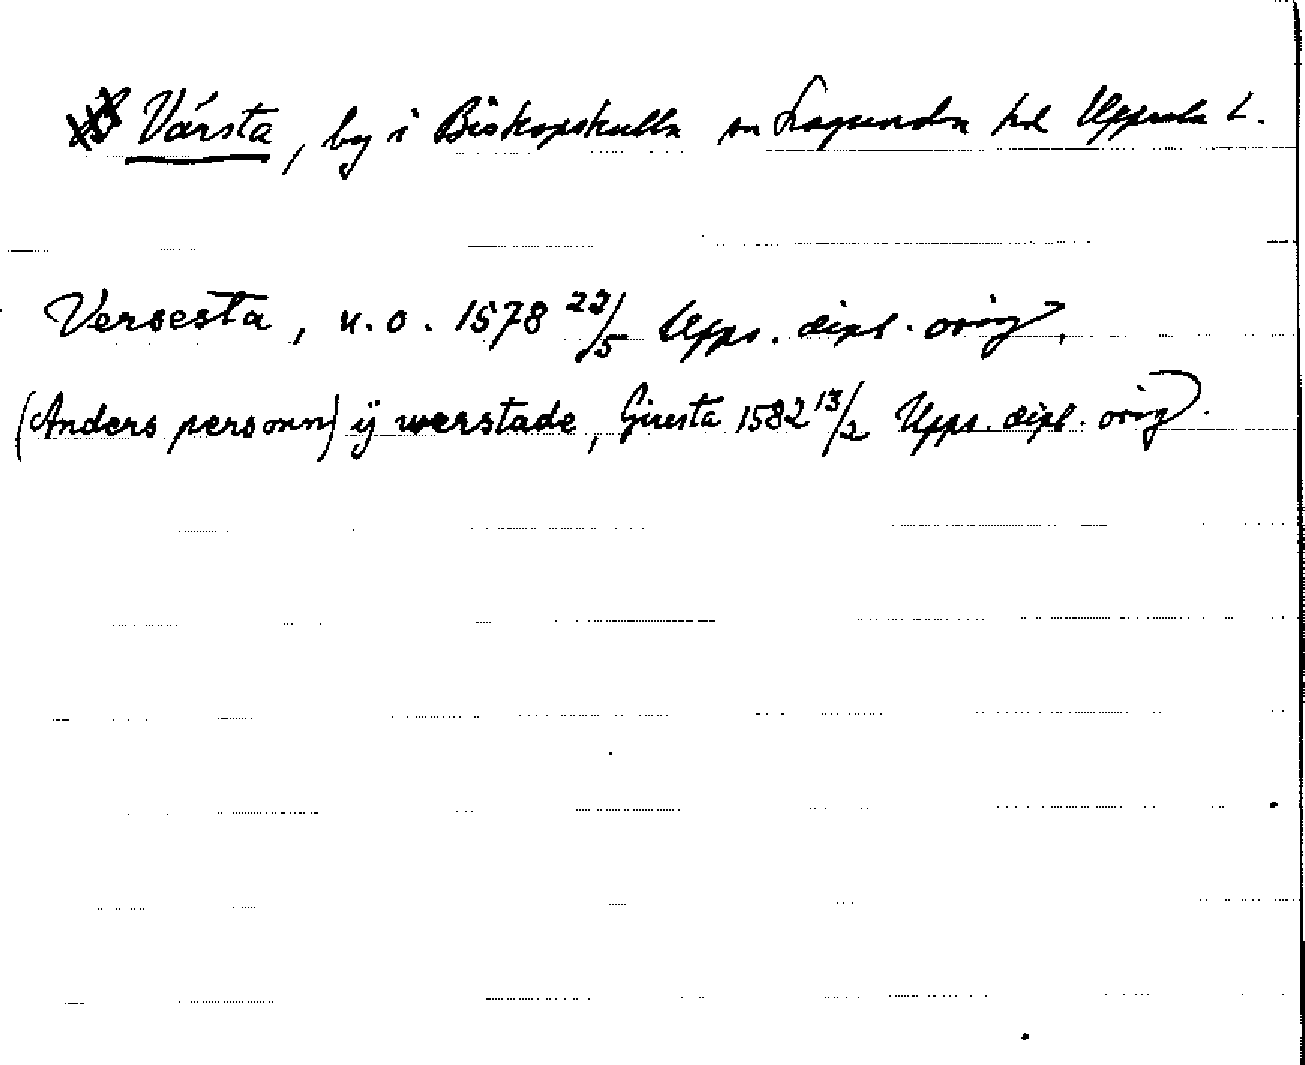 Vårsta, by i Biskopskulla sn Lagunda hd Uppsala L.
Versesta, u.o. 1578 22/5 Upps. dipl. orig,
(Anders personn) ÿ werstade, Giresta 1582 13/2 Upps. dipl. orig.